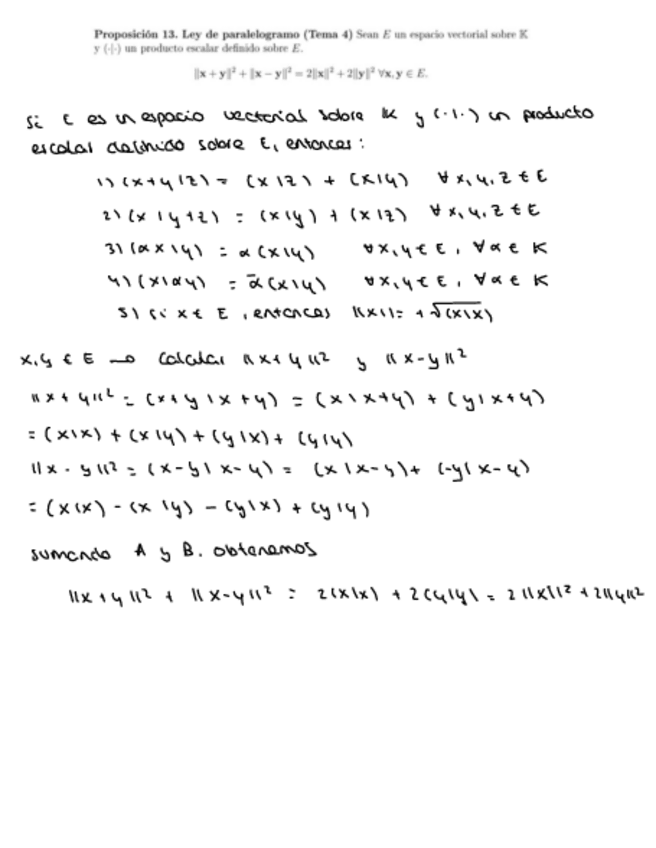 Proposición 13. Ley de paralelogramo (Tema 4) Sean E un espacio vectorial sobre K
y (·|·) un producto escalar definido sobre E.
‖x + y‖² + ‖x − y‖² = 2‖x‖² + 2‖y‖² ∀x, y ∈ E.
Si E es un espacio vectorial sobre K y (·|·) un producto
escalar definido sobre E, entonces:
1) (x+y|z) = (x|z) + (x|y) ∀x, y, z ∈ E
2) (x|y+z) = (x|y) + (x|z) ∀x, y, z ∈ E
3) (αx|y) = α(x|y) ∀x, y ∈ E, ∀α ∈ K
4) (x|αy) = ᾱ(x|y) ∀x, y ∈ E, ∀α ∈ K
5) si x ∈ E, entonces ‖x‖ = +√(x|x)
x, y ∈ E → calcular ‖x+y‖² y ‖x−y‖²
‖x+y‖² = (x+y|x+y) = (x|x+y) + (y|x+y)
= (x|x) + (x|y) + (y|x) + (y|y)
‖x−y‖² = (x−y|x−y) = (x|x−y) + (−y|x−y)
= (x|x) − (x|y) − (y|x) + (y|y)
sumando A y B. obtenemos
‖x+y‖² + ‖x−y‖² = 2(x|x) + 2(y|y) = 2‖x‖² + 2‖y‖²